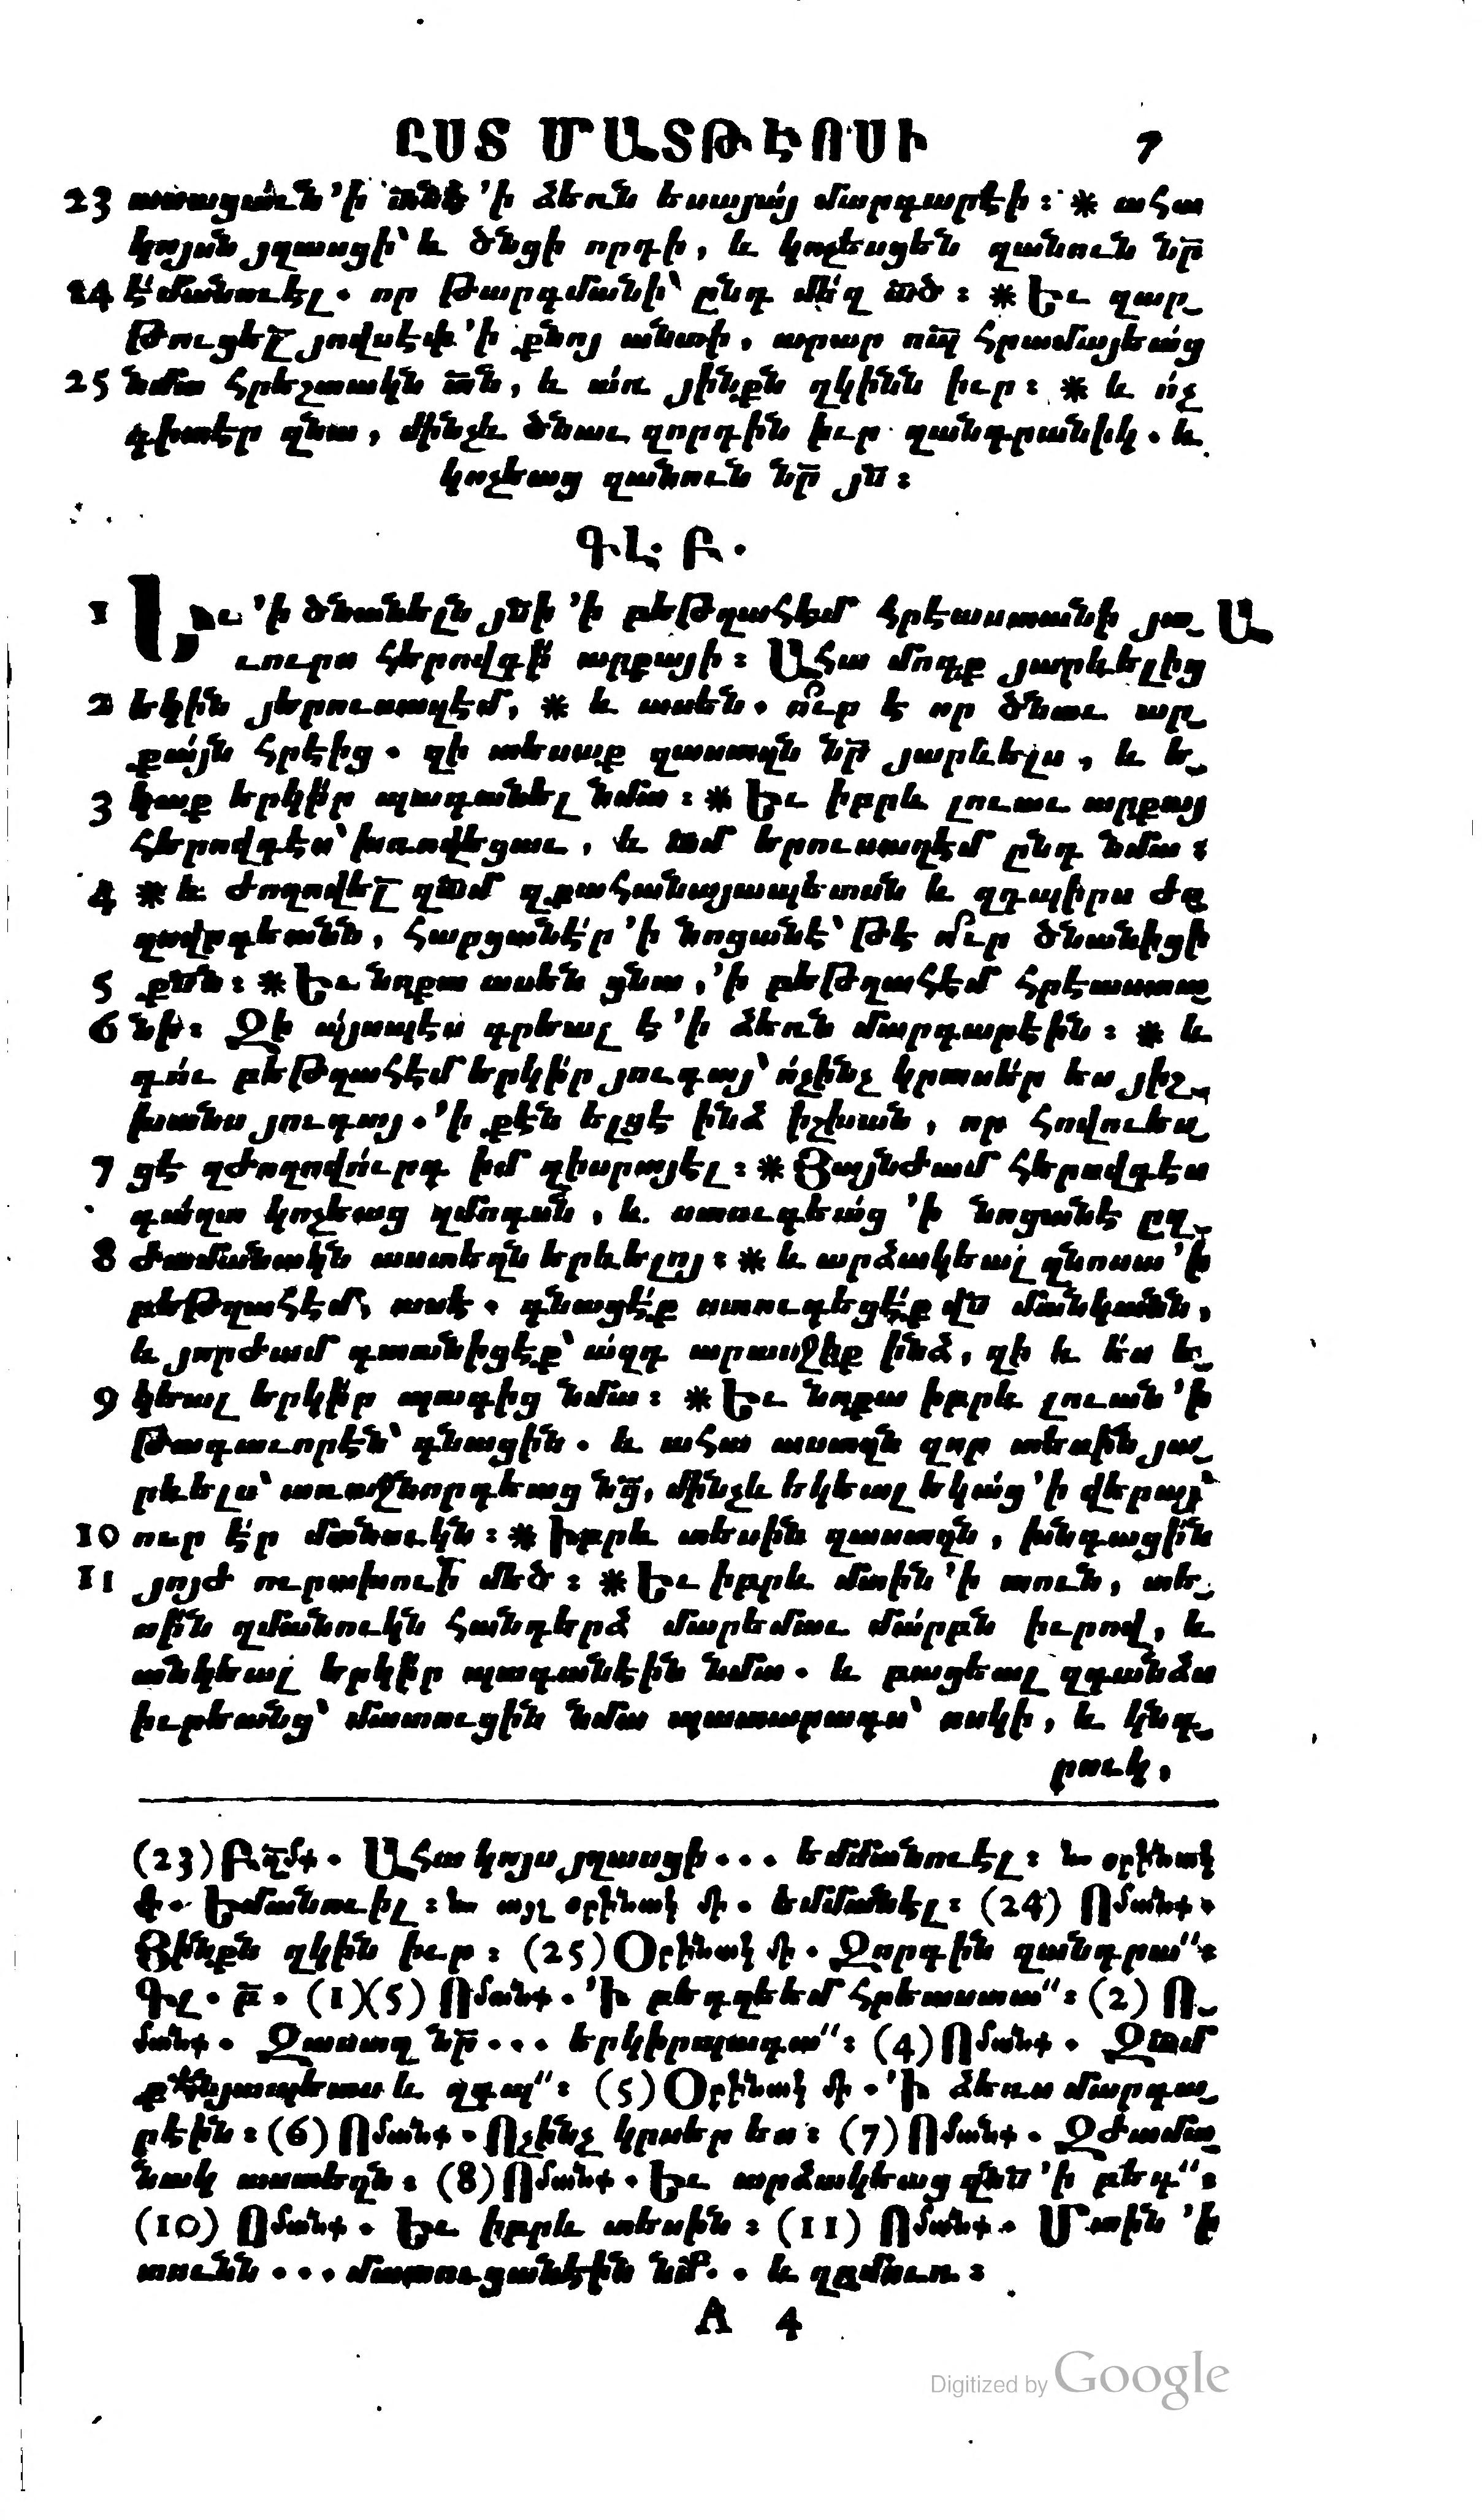 ԸՍՏ ՄԱՏԹԷՈՍԻ 7
23 ասացաւն ՚ի տնէ ՚ի ձեռն եսայայ մարգարէի ։ * ահա
կոյսն յղասցի՝ և ծնցի որդի , և կոչեսցեն զանուն նր̅
24 է՛մանուէլ . որ թարգմանի՝ ընդ մե՛զ ա̅ծ ։ * Եւ զար֊
թուցել̅ յովսէփ ՚ի քնոյ անտի , արար որպ̅ հրամայեաց
25 նմա հրեշտակն տ̅ն , և ա՛ռ յինքն զկինն իւր ։ * և ո՛չ
գիտէր զնա , մինչև ծնաւ զորդին իւր զանդրանիկ . և
կոչեաց զանուն նր̅ յս̅ ։
ԳԼ . Բ .
1 Եւ ՚ի ծնանելն յս̅ի ՚ի բեթղահէմ հրէաստանի յա֊ Ա
ւուրս հերովդի՛ արքայի ։ Ահա մոգք յարևելից
2 եկին յերուսաղէմ , * և ասեն . ո՞ւր է որ ծնաւ ար֊
քայն հրէից . զի տեսաք զաստղն նր̅ յարևելս , և ե֊
3 կաք երկի՛ր պագանել նմա ։ * Եւ իբրև լուաւ արքայ
հերովդէս՝ խռովեցաւ , և ա̅մ երուսաղէմ ընդ նմա ։
4 * և ժողովել̅ զա̅մ զքահանայապետսն և զդպիրս ժո֊
ղովրդեանն , հարցանէր ՚ի նոցանէ՝ թէ ո՞ւր ծնանիցի
5 քս̅ն ։ * Եւ նոքա ասեն ցնա , ՚ի բեթղահէմ հրէաստա֊
6 նի ։ Զի այսպէս գրեալ է ՚ի ձեռն մարգարէին ։ * և
դու բեթղահէմ երկի՛ր յուդայ՝ ո՛չինչ կրտսեր ես յիշ֊
խանս յուդայ . ՚ի քէն ելցէ ինձ իշխան , որ հովուես֊
7 ցէ զժողովուրդ իմ զիսրայէլ ։ * Յայնժամ հերովդէս
գա՛ղտ կոչեաց զմոգսն , և ստուգեաց ՚ի նոցանէ ըզ֊
8 ժամանակն աստեղն երևելոյ ։ * և արձակեալ զնոսա ՚ի
բեթղահէմ , ասէ . գնացէ՛ք ստուգեցէ՛ք վս̅ մանկանն ,
և յորժամ գտանիցէք՝ ա՛զդ արասջիք ինձ , զի և ե՛ս ե֊
9 կեալ երկի՛ր պագից նմա ։ * Եւ նոքա իբրև լուան ՚ի
թագաւորէն՝ գնացին . և ահա աստղն զոր տեսին յա֊
րևելս՝ առաջնորդեաց նց̅ , մինչև եկեալ եկաց ՚ի վերայ՝
10 ուր էր մանուկն ։ * Իբրև տեսին զաստղն , խնդացին
11 յոյժ ուրախուի̅ մեծ ։ * Եւ իբրև մտին ՚ի տուն , տե֊
սին զմանուկն հանդերձ մարեմաւ մարբն իւրով , և
անկեալ երկի՛ր պագանէին նմա . և բացեալ զգանձս
իւրեանց՝ մատուցին նմա պատարագս՝ ոսկի , և կնդ֊
րուկ ,
(23) Բզմք . Ահա կոյս յղասցի . . . եմմանուէլ ։ Եւ օրինակ
մի . Եմանուիլ ։ Եւ այլ օրինակ մի . եմմանէլ ։ (24) Ոմանք .
Յինքն զկին իւր ։ (25) Օրինակ մի . Զորդին զանդրա՟ ։
Գլ . բ̅ . (1)(5) Ոմանք . ՚Ի բեդղեեմ հրեաստա՟ ։ (2) Ո֊
մանք . Զաստղ նր̅ . . . երկիրպագա՟ ։ (4) Ոմանք . Զա̅մ
քհնյապետս և զդպ՟ ։ (5) Օրինակ մի . ՚Ի ձեռս մարգա֊
րէին ։ (6) Ոմանք . Ոչինչ կրսեր ես ։ (7) Ոմանք . Զժամա֊
նակ աստեղն ։ (8) Ոմանք . Եւ արձակեաց զնս̅ ՚ի բեդ՟ ։
(10) Ոմանք . Եւ իբրև տեսին ։ (11) Ոմանք . Մտին ՚ի
տունն . . . մատուցանէին նմ̅ . . և զզմուռ ։
A 4
Digitized by Google